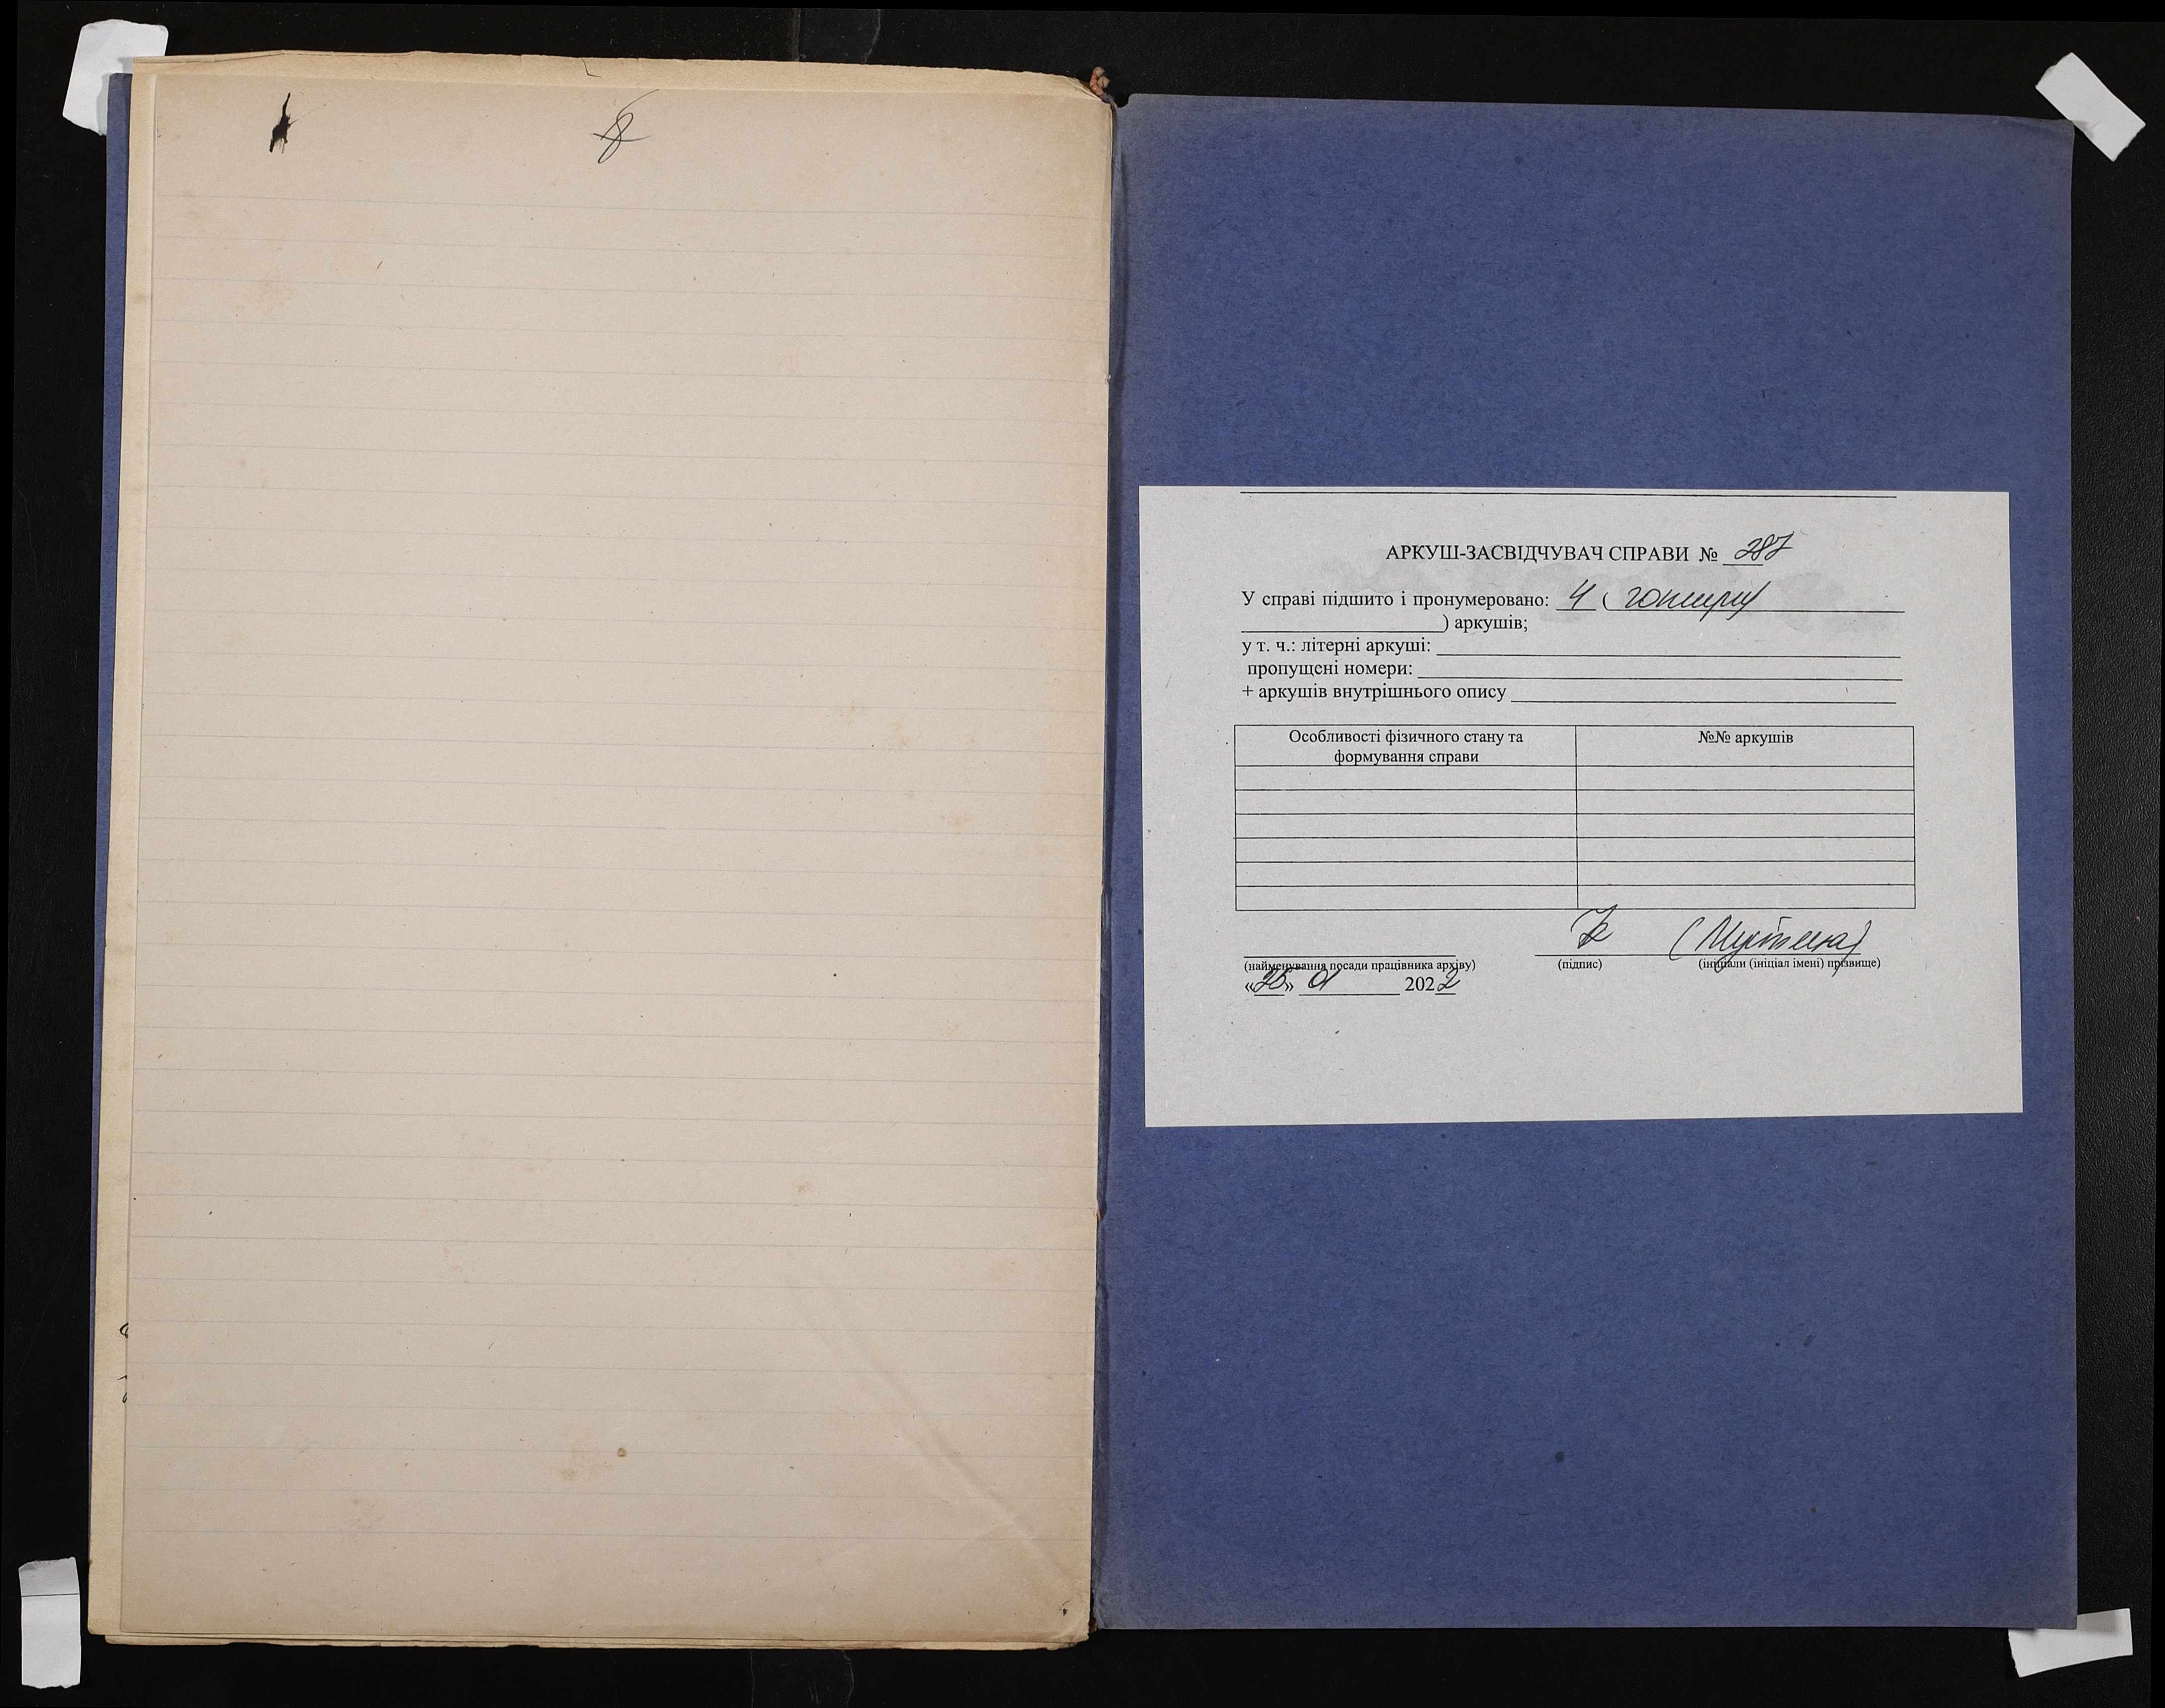 8
АРКУШ-ЗАСВІДЧУВАЧ СПРАВИ № 287
У справі підшито і пронумеровано: 4 ( чотири
) аркушів;
у т. ч.: літерні аркуші:
пропущені номери:
+ аркушів внутрішнього опису
Особливості фізичного стану та формування справи
№№ аркушів
(найменування посади працівника архіву)
(підпис)
(ініціали (ініціал імені) прізвище)
«26» 01 2022